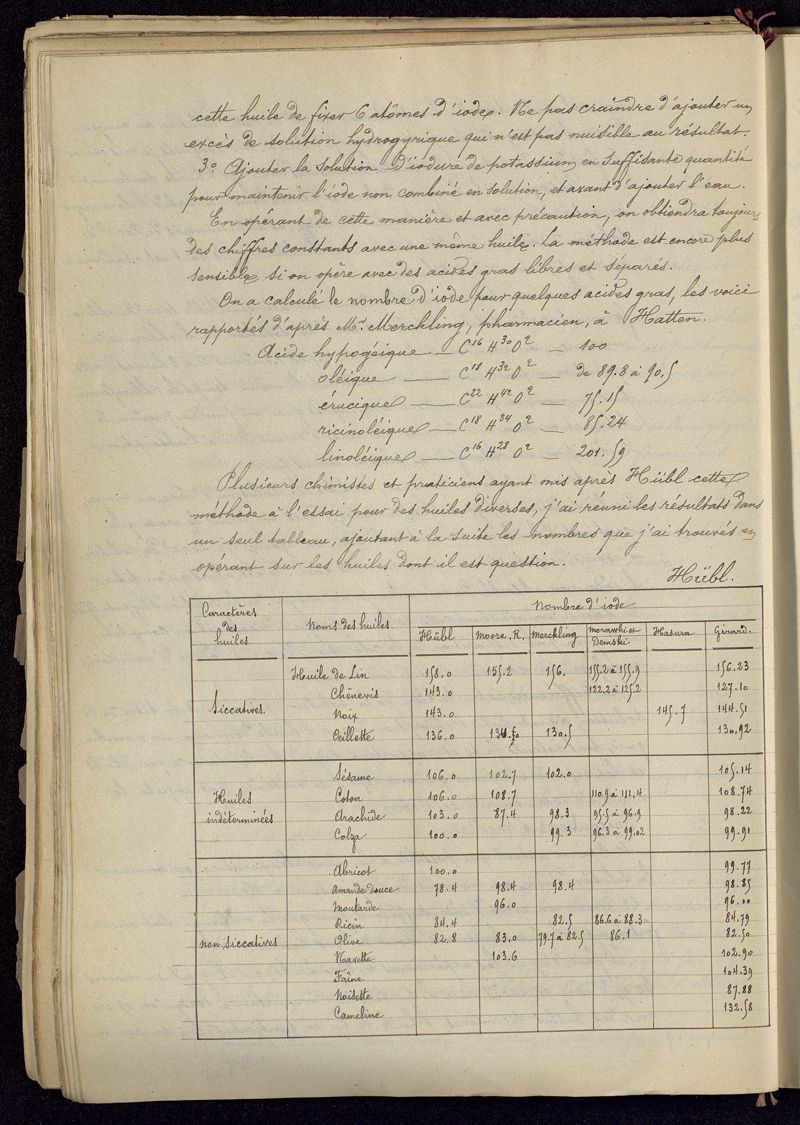 cette huile de fixer 6 atômes d'iode. Ne pas craindre d'ajouter un
excés de solution hydrogyrique qui n'est pas nuisible au résultat.
3º Ajouter la solution d'iodure de potassium en suffisante quantité
pour maintenir l'iode non combiné en solution, et avant d'ajouter l'eau.
En opérant de cette manière et avec précaution, on obtiendra toujours
des chiffres constants avec une même huile. La méthode est encore plus
sensible si on opère avec des acides gras libres et séparés.
On a calculé le nombre d'iode pour quelques acides gras, les voici
rapportés d'aprés Mr. Merckling, pharmacien, à Hatten.
Acide hypogéique — C16 H30 O2 — 100
oléique — C18 H32 O2 — de 89.8 à 90.5
érucique — C22 H42 O2 — 75.15
ricinoléique — C18 H34 O2 — 85.24
linoléique — C16 H28 O2 — 201.59
Plusieurs chimistes et praticiens ayant mis après Hübl cette
méthode à l'essai pour des huiles diverses, j'ai réuni les résultats dans
un seul tableau, ajoutant à la suite les nombres que j'ai trouvés en
opérant sur les huiles dont il est question.
Hübl.
Caractères des huiles. Noms des huiles. Nombre d'iode
Hübl Moore. R. Merckling Morawski et Demski Hasura Girard.
Siccatives.
Huile de Lin 158.0 155.2 156. 155.2 à 155.9 156.23
Chênevis 143.0 122.2 à 125.2 127.10
Noix 143.0 145.7 144.51
Œillette 136.0 130.5 130,92
Huiles indéterminées
Sésame 106.0 102.7 102.0 105.14
Coton 106.0 108.7 110.9 à 111,4 108.74
Arachide 103.0 87.4 98.3 95.5 à 96.9 98.22
Colza 100.0 99.3 96.3 à 99.02 99.91
non siccatives
Abricot 100.0 99.77
Amande douce 78.4 98.4 98.4 98.85
Moutarde 96.0 96.00
Ricin 84.4 82.5 86.6 à 88.3 84.79
Olive 82.8 83.0 79.7 à 82.5 86.1 82.50
Navette 103.6 102.90
Faîne 104.39
Noisette 87.88
Cameline 132.58